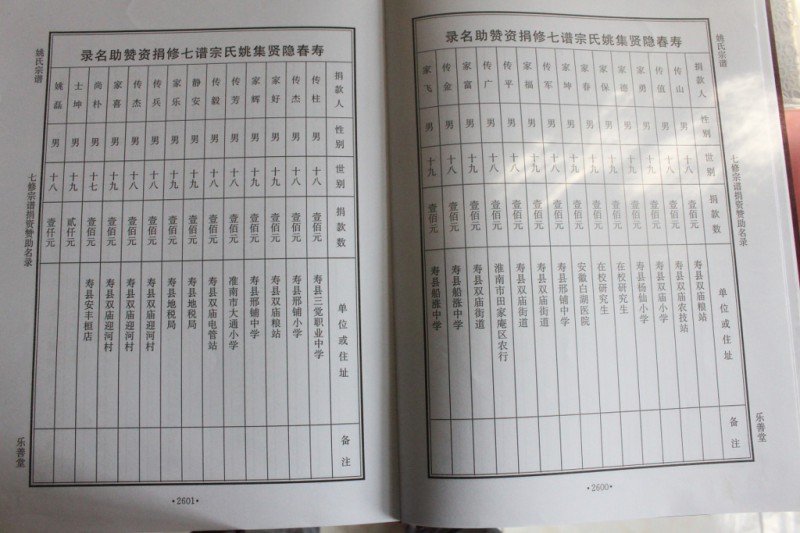 姚氏宗谱
七修宗谱捐资赞助名录
乐善堂
寿春隐贤集姚氏宗谱七修捐资赞助名录
捐款人 性别 世别 捐款数 单位或住址 备注
传山 男 十八 壹佰元 寿县双庙粮站
传值 男 十八 壹佰元 寿县双庙农技站
家勇 男 十九 壹佰元 寿县双庙小学
家 男 十九 壹佰元 寿县杨仙小学
家保 男 十九 壹佰元 在校研究生
家春 男 十九 壹佰元 在校研究生
家坤 男 十九 壹佰元 安徽白湖医院
传军 男 十八 壹佰元 寿县邢铺中学
家福 男 十九 壹佰元 寿县双庙街道
传平 男 十八 壹佰元 寿县双庙街道
传广 男 十八 壹佰元 淮南市田家庵区农行
家富 男 十九 壹佰元 寿县双庙街道
传金 男 十八 壹佰元 寿县船涨中学
家飞 男 十九 壹佰元 寿县船涨中学
·2600·
寿春隐贤集姚氏宗谱七修捐资赞助名录
捐款人 性别 世别 捐款数 单位或住址 备注
传柱 男 十八 壹佰元 寿县三觉职业中学
传杰 男 十八 壹佰元 寿县邢铺小学
家好 男 十九 壹佰元 寿县双庙粮站
家辉 男 十九 壹佰元 寿县邢铺中学
传芳 男 十八 壹佰元 淮南市大通小学
传毅 男 十八 壹佰元 寿县双庙电管站
静安 男 十九 壹佰元 寿县地税局
家乐 男 十九 壹佰元 寿县地税局
传兵 男 十八 壹佰元 寿县双庙迎河村
传杰 男 十八 壹佰元 寿县双庙迎河村
家喜 男 十九 壹佰元 寿县双庙迎河村
尚朴 男 十七 壹佰元 寿县安丰桓店
士坤 男 十九 贰仟元
姚磊 男 十八 壹仟元
·2601·
姚氏宗谱
七修宗谱捐资赞助名录
乐善堂